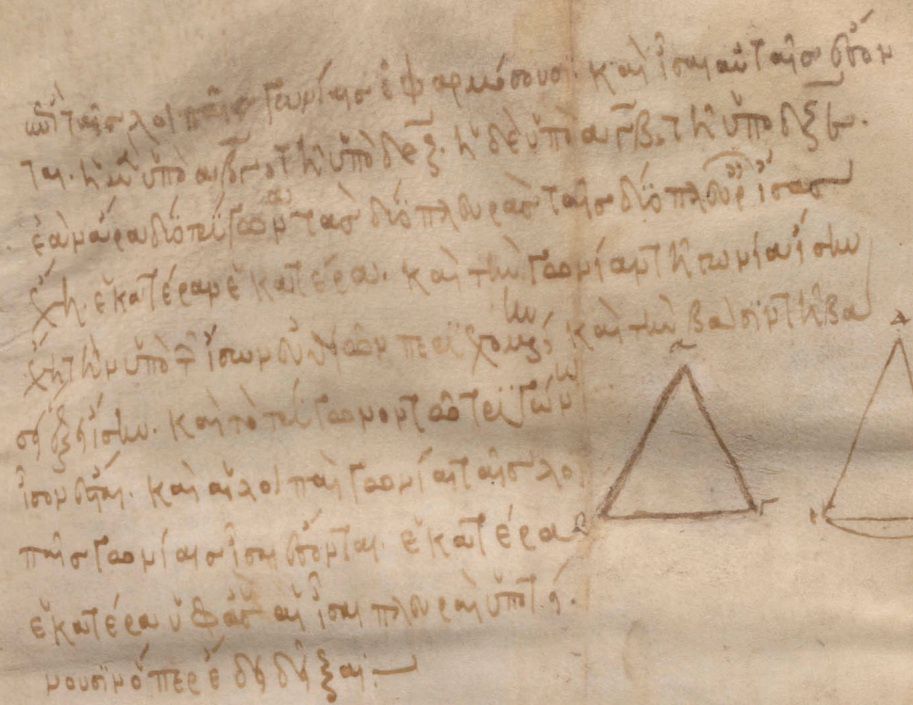 ἐπὶ τὰς λοιπὰς γωνίας ἐφαρμόσουσι καὶ ἴσαι αὐταῖς ἔσον
ται. ἡ μὲν ὑπὸ αβγ τῆ ὑπὸ δεζ. ἡ δὲ ὑπὸ αγβ τῆ ὑπὸ δζε.
ἐὰν ἄρα δύο τρίγωνα τὰς δύο πλευρὰς ταῖς δύο πλευραῖς ἴσας
ἔχη. ἑκατέραν ἑκατέρα. καὶ τὴν γωνίαν τῆ γωνία ἴσην
ἔχη τὴν ὑπὸ τῶν ἴσων εὐθειῶν περιεχομένην, καὶ τὴν βάσιν τῆ βά
σει ἕξει ἴσην. καὶ τὸ τρίγωνον τῶ τριγώνω
ἴσον ἔσται. καὶ αἱ λοιπαὶ γωνίαι ταῖς λοι
παῖς γωνίαις ἴσαι ἔσονται. ἑκατέρα
ἑκατέρα ὑφ' ἃς αἱ ἴσαι πλευραὶ ὑποτεί
νουσιν ὅπερ ἔδει δεῖξαι
α
β γ
δ
ε